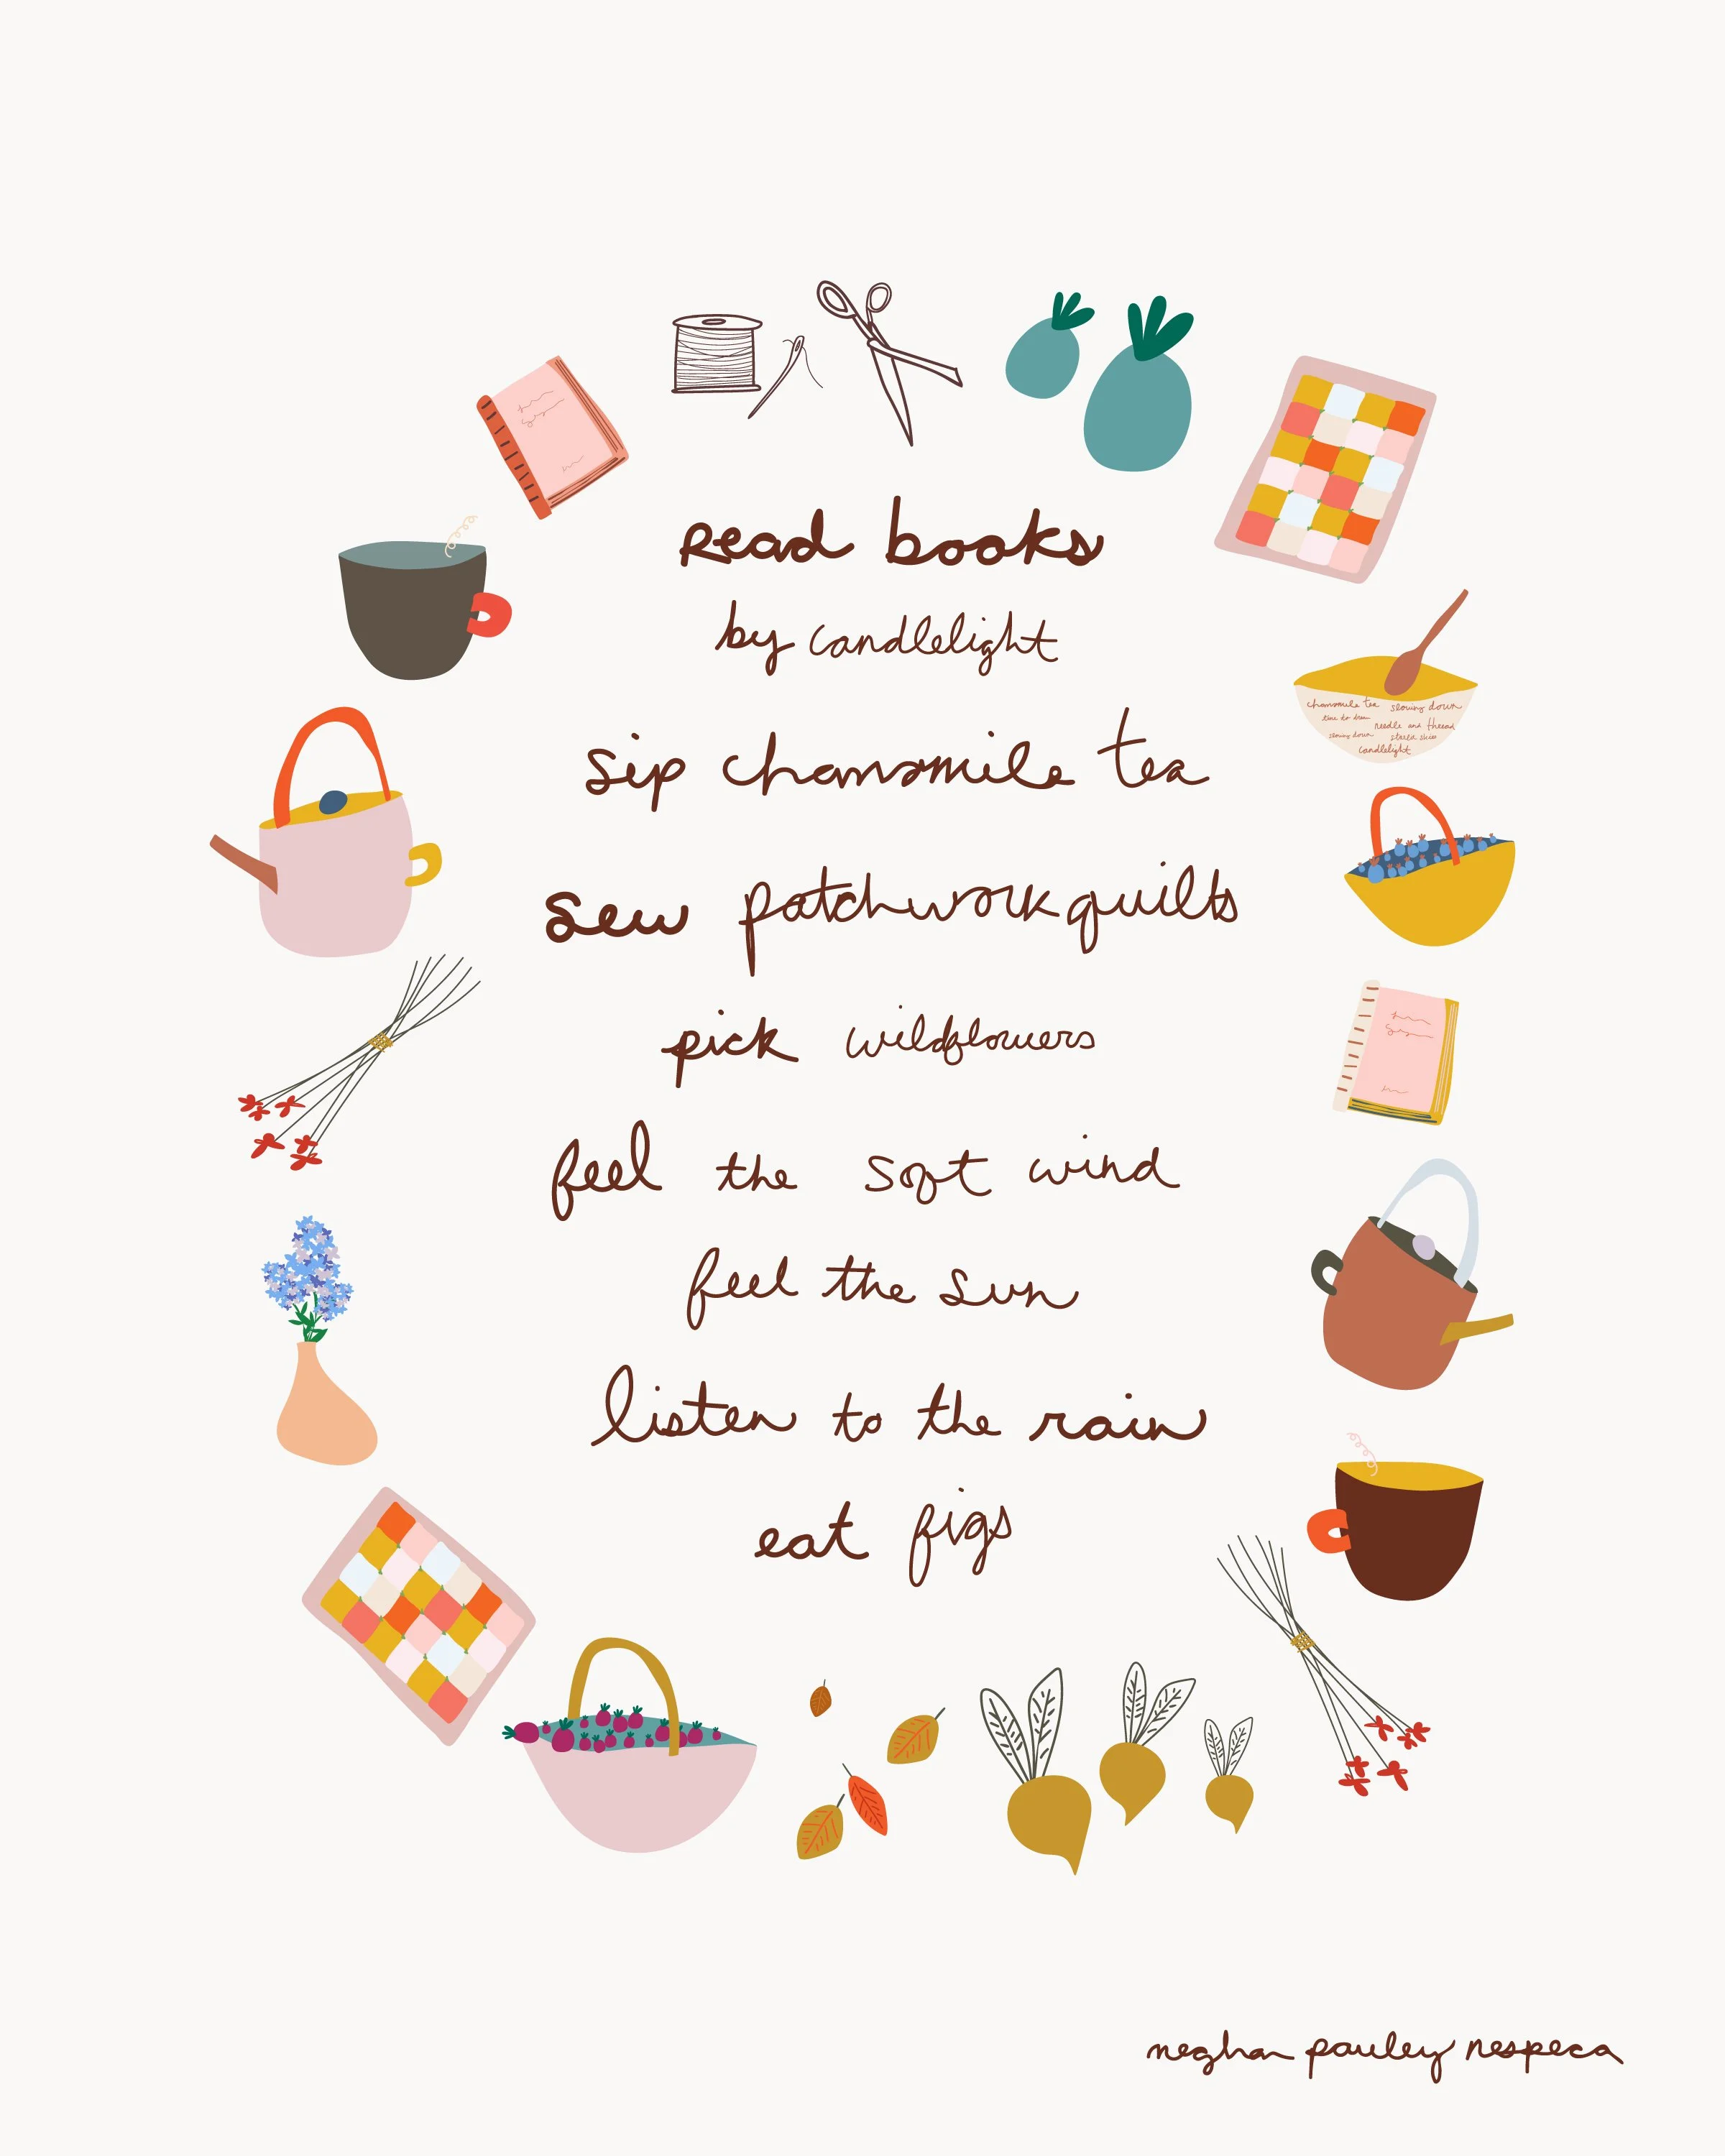 read books
by candlelight
chamomile tea slowing down
time to draw needle and thread
slowing down starlit skies
candlelight
sip chamomile tea
sew patchwork quilts
pick wildflowers
feel the soft wind
feel the sun
listen to the rain
eat figs
meghan pauley nespeca